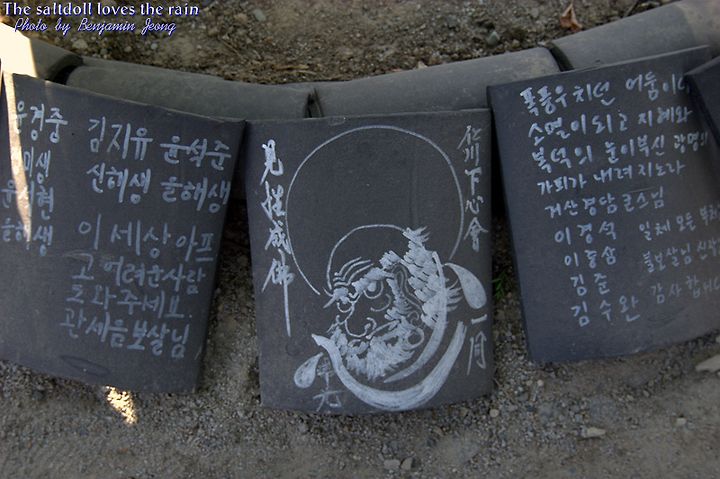 The saltdoll loves the rain
Photo by Benjamin Jeong
윤경중
김지유 윤석준
미생
신해생 을해생
윤석현
을해생
이 세상 아프
고 어려운 사람
도와주세요
관세음보살님
見性成佛
下心會
一月
폭풍우 치던 어둠이
소멸이 되고 지혜와
복덕의 눈이부신 광명의
가피가 내려지노라
거산경담 큰스님
이경석 일체 모든
이동삼 불보살님
김준
김수완 감사합